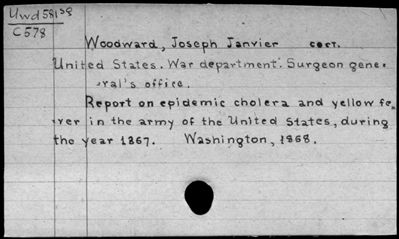 Uwd581sg
C578
Woodward, Joseph Janvier
United States. War department. Surgeon gene-
ral's office.
Report on epidemic cholera and yellow fe-
ver in the army of the United States, during
the year 1867. Washington, 1868.